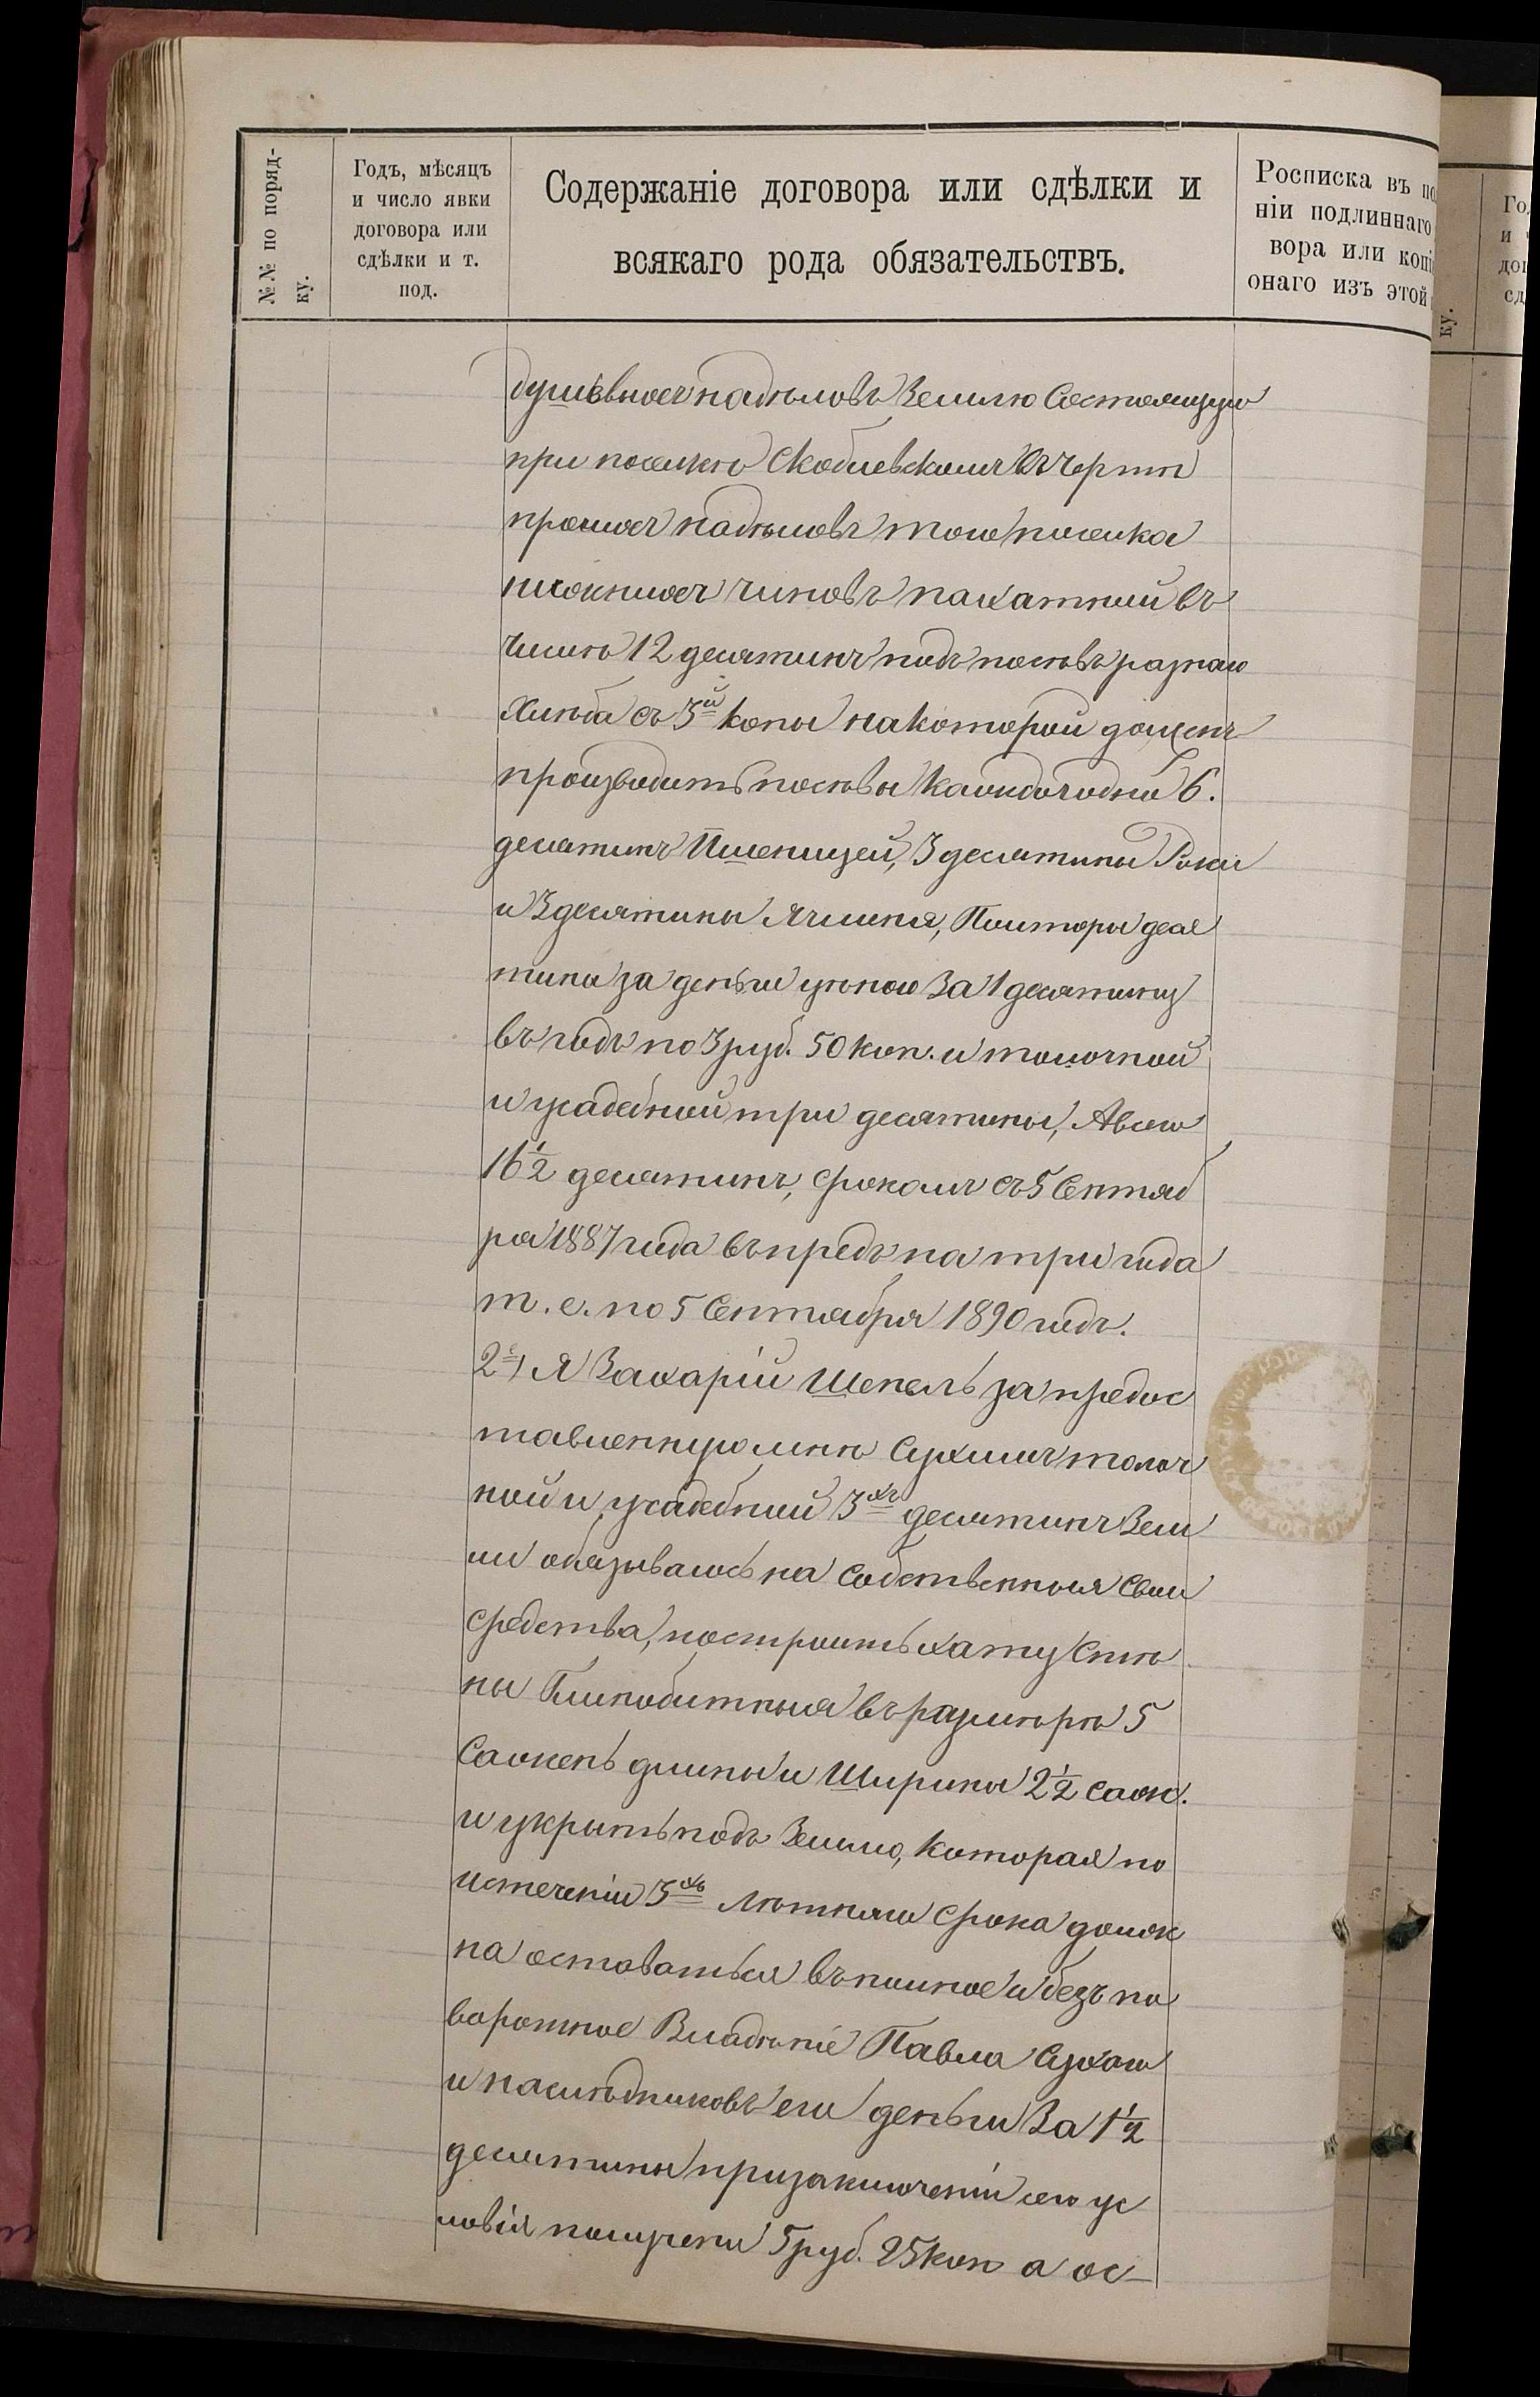 №№ по поряд-
ку.
Годъ, мѣсяцъ
и число явки
договора или
сдѣлки и т.
под.
Содержаніе договора или сдѣлки и
всякаго рода обязательствъ.
Росписка въ по
ніи подлиннаго
вора или копі
онаго изъ этой
душевныхъ надѣловъ землю Состоящую
при поселкѣ Скобелевскомъ въ чертѣ
прочихъ надѣловъ того поселка
нижнихъ чиновъ пахатной въ
числѣ 12 десятинъ подъ посѣвъ разнаго
хлѣба съ 3й копы на которой долженъ
производить посѣвы каждогодно 6.
десятинъ Пшеницей, 3 десятины Ржи
и 3 десятины Ячменя, Полторы деся
тины за деньги цѣною За 1 десятину
въ годъ по 3 руб. 50 коп. и толочной
и усадебной три десятины, А всего
16 1/2 десятинъ, срокомъ съ 5 Сентяб
ря 1887 года впредь на три года
т. е. по 5 Сентября 1890 годъ.
2е) Я Захарій Шепель за предос
тавленную мнѣ Сухимъ толоч
ной и усадебной 3хъ десятинъ Зем
ли обязываюсь на собственныя свои
средства, построить хату Стѣ
ны Глинобитныя въ размѣрѣ 5
Сажень длины и Ширины 2 1/2 саж.
и укрыть подъ Землю, которая по
истеченіи 3хъ лѣтняго срока долж
на оставаться въ полное и безъ по
воротное Владѣніе Павла Сухаго
и наслѣдниковъ его деньги За 1 1/2
десятины при заключеніи сего ус
ловія получены 5 руб. 25 коп а ос-